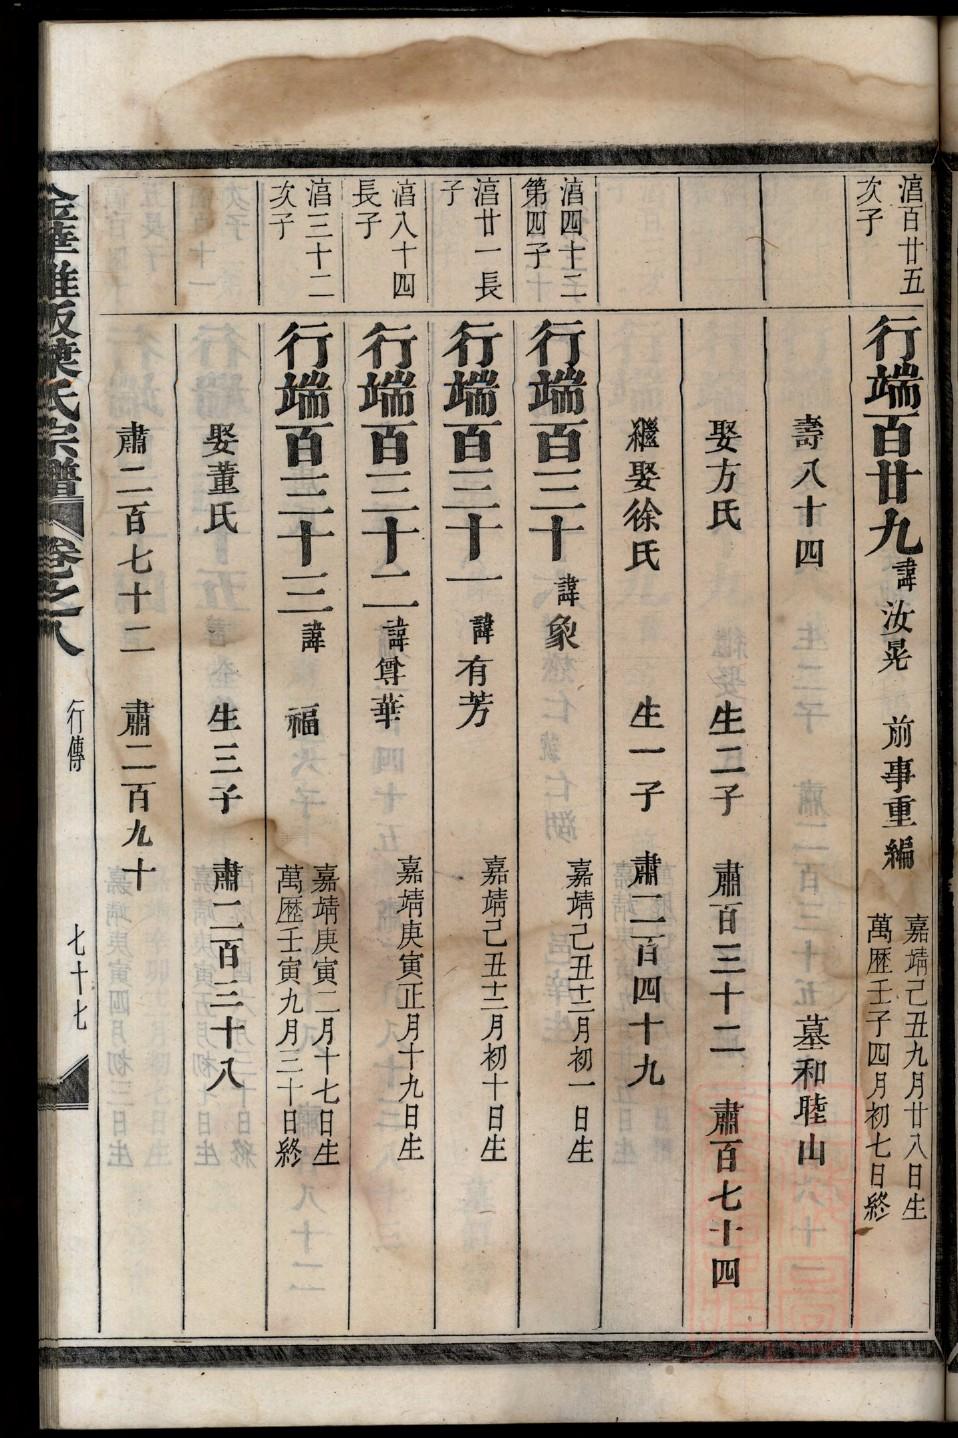 湻百廿五
次子
行端百廿九 諱汝晃 前事重編 嘉靖己丑九月廿八日生
萬歷壬子四月初七日終
壽八十四 墓和睦山
娶方氏 生二子 肅百三十二 肅百七十四
繼娶徐氏 生一子 肅二百四十九
湻四十二
第四子
行端百三十 諱象 嘉靖己丑十二月初一日生
湻廿一長
子
行端百三十一 諱有芳 嘉靖己丑十二月初十日生
湻八十四
長子
行端百三十二 諱尊華 嘉靖庚寅正月十九日生
湻三十二
次子
行端百三十三 諱 福 嘉靖庚寅二月十七日生
萬歷壬寅九月三十日終
娶董氏 生三子 肅二百三十八
肅二百七十二 肅二百九十
葉氏宗譜 卷之八 行傳 七十七